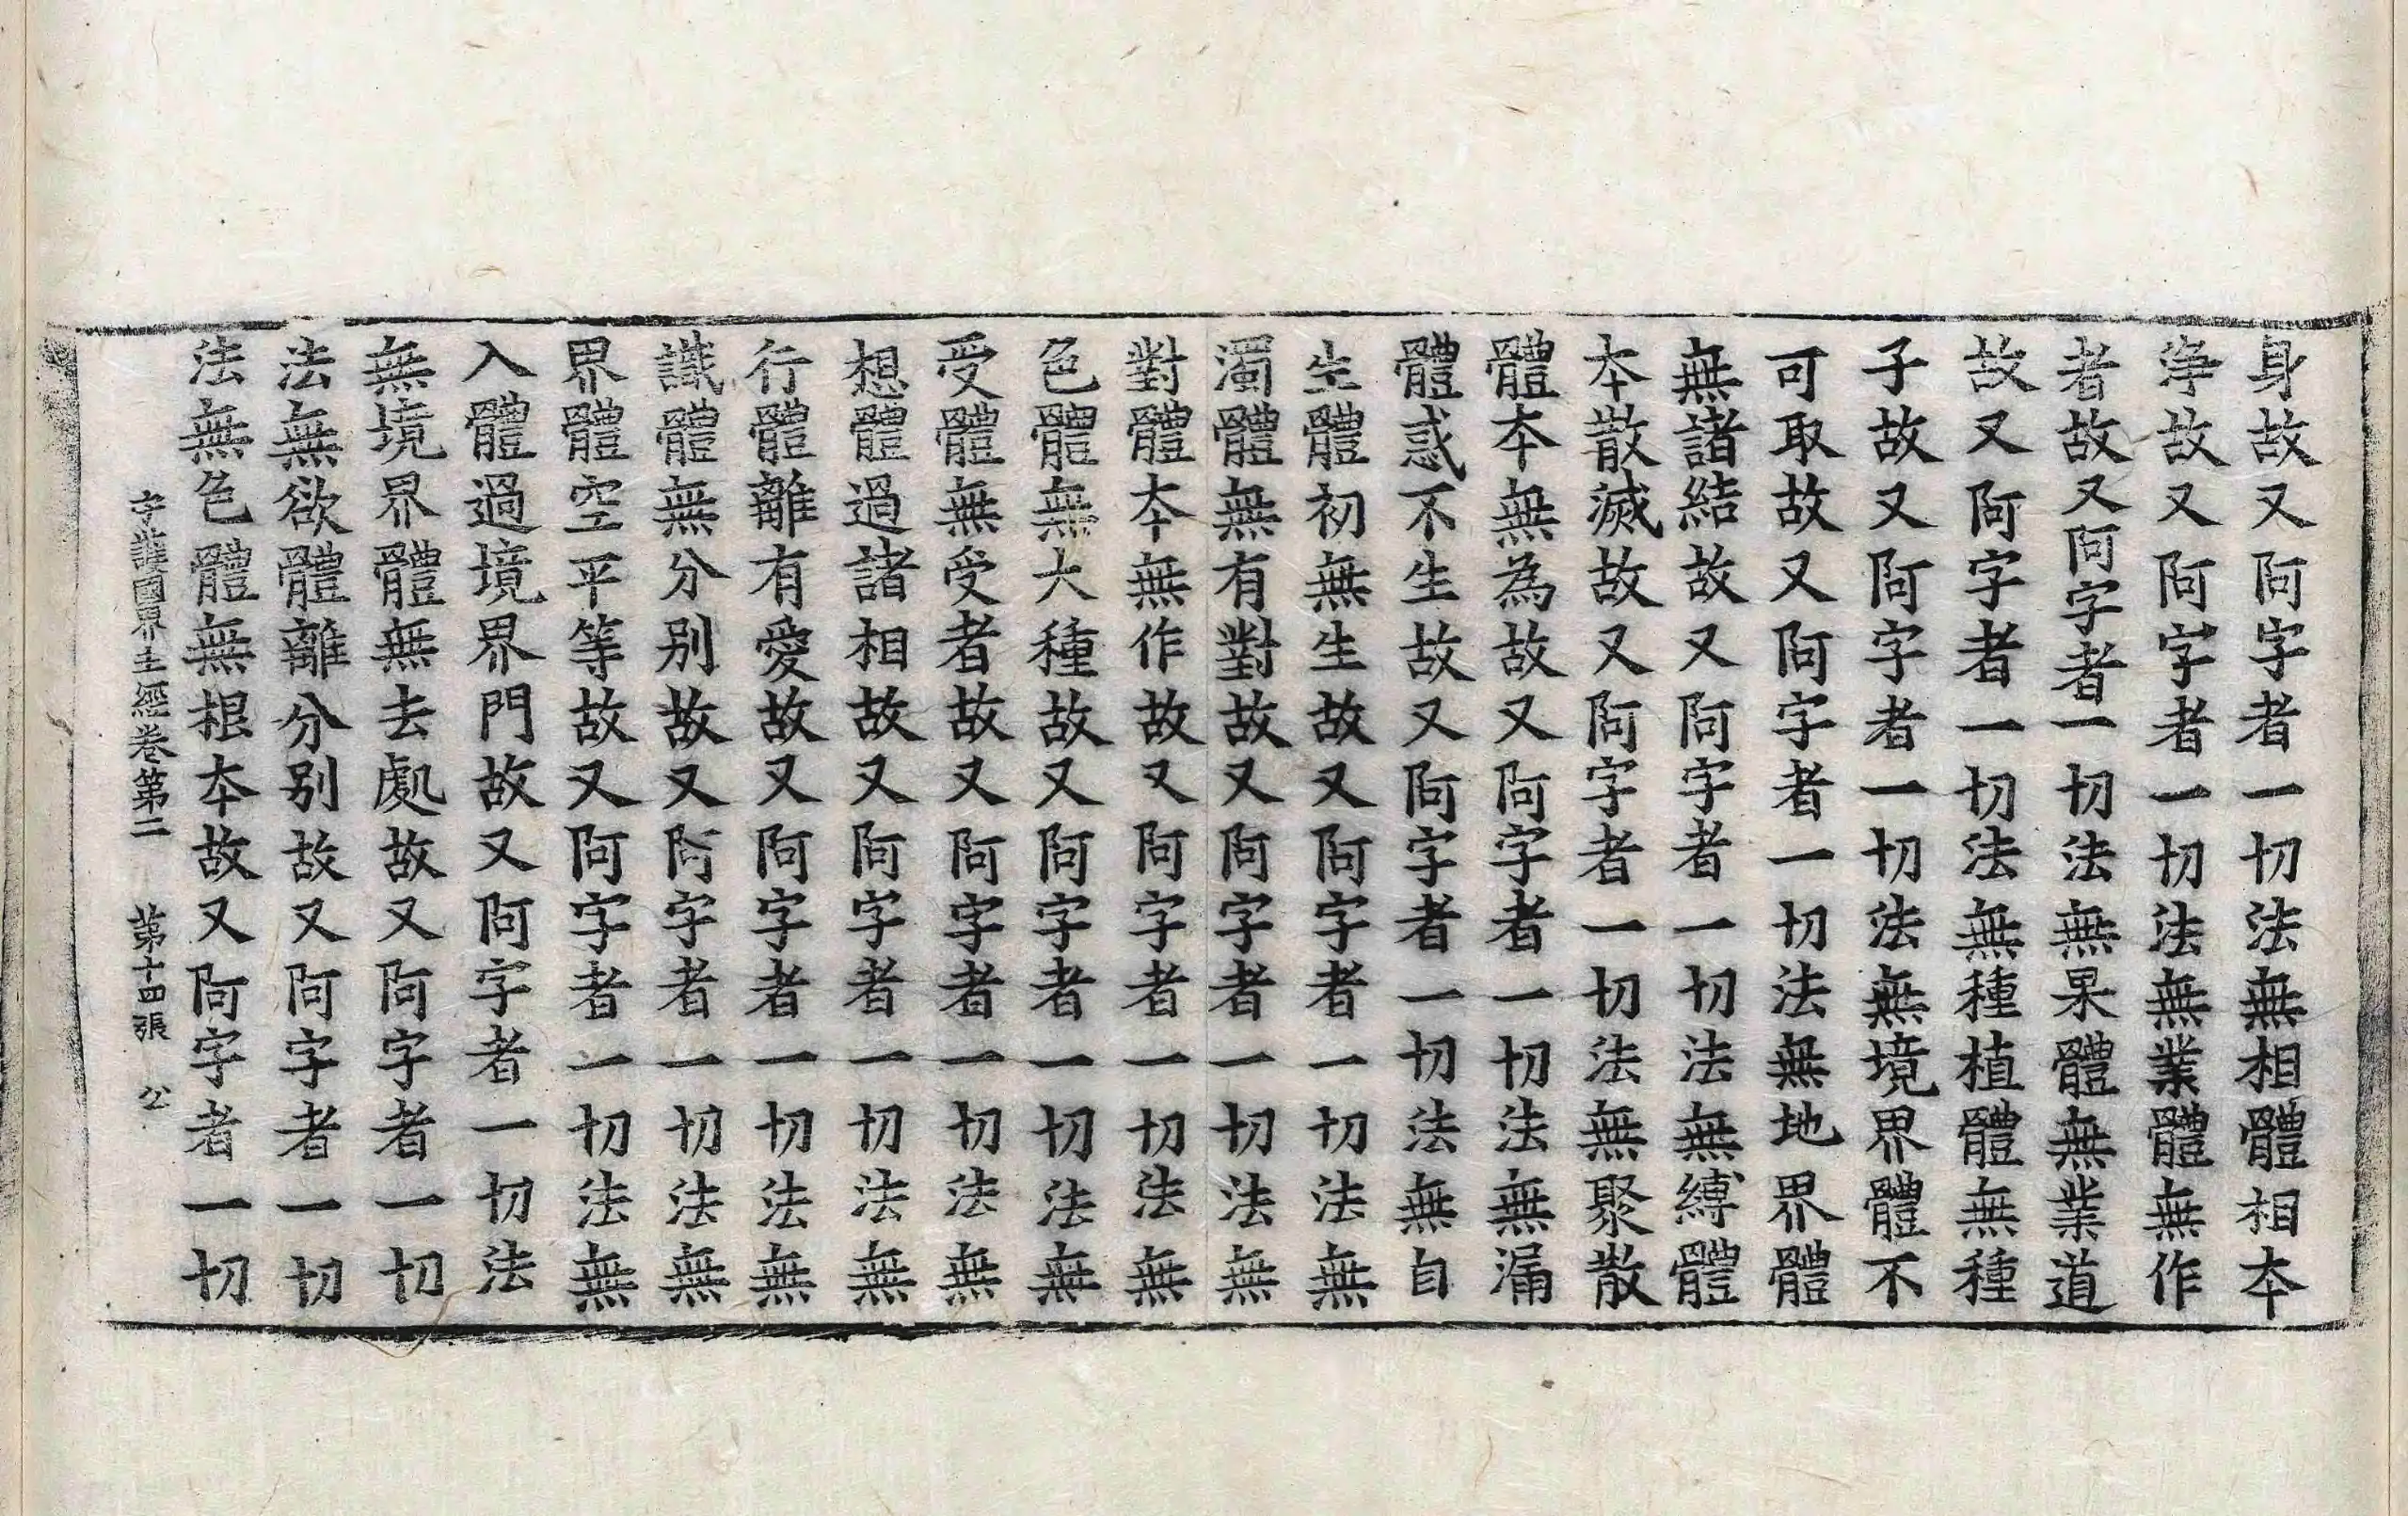 身故又阿字者一切法無相體相本
淨故又阿字者一切法無業體無作
者故又阿字者一切法無果體無業道
故又阿字者一切法無種植體無種
子故又阿字者一切法無境界體不
可取故又阿字者一切法無地界體
無諸結故又阿字者一切法無縛體
本散滅故又阿字者一切法無聚散
體本無為故又阿字者一切法無漏
體惑不生故又阿字者一切法無自
生體初無生故又阿字者一切法無
濁體無有對故又阿字者一切法無
對體本無作故又阿字者一切法無
色體無大種故又阿字者一切法無
受體無受者故又阿字者一切法無
想體過諸相故又阿字者一切法無
行體離有愛故又阿字者一切法無
識體無分别故又阿字者一切法無
界體空平等故又阿字者一切法無
入體過境界門故又阿字者一切法
無境界體無去處故又阿字者一切
法無欲體離分别故又阿字者一切
法無色體無根本故又阿字者一切
守護國界主經卷第二 第十四張 公